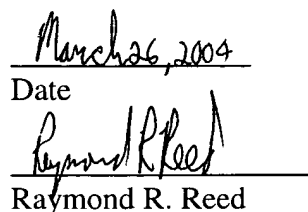 March 26, 2004
Date
Raymond R Reed
Raymond R. Reed